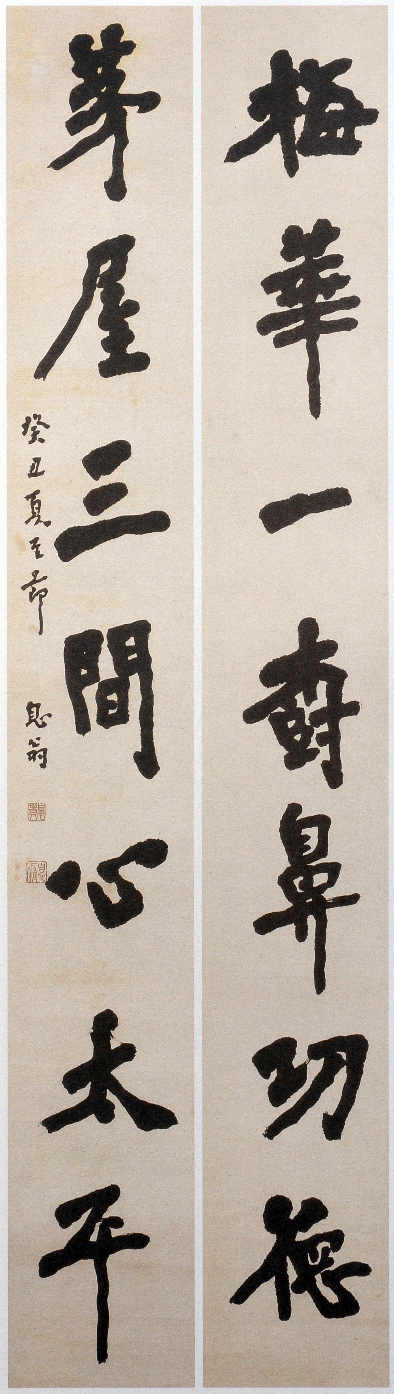 梅華一樹鼻功德
茅屋三間心太平
癸丑夏至節
息翁